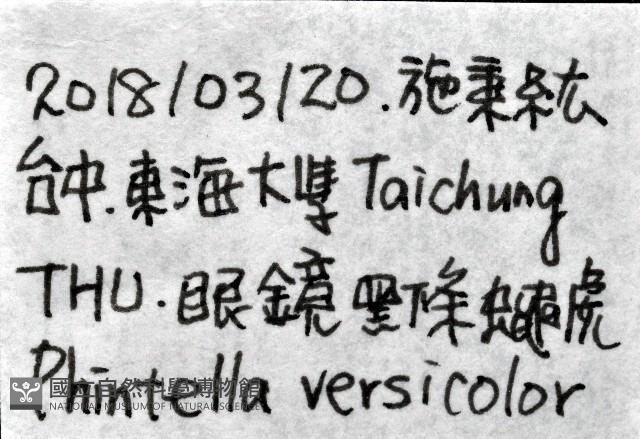 2018/03/20.施秉紘
台中.東海大學 Taichung
THU.眼鏡黑條蠅虎
Phintella versicolor
國立自然科學博物館
NATIONAL MUSEUM OF NATURAL SCIENCE